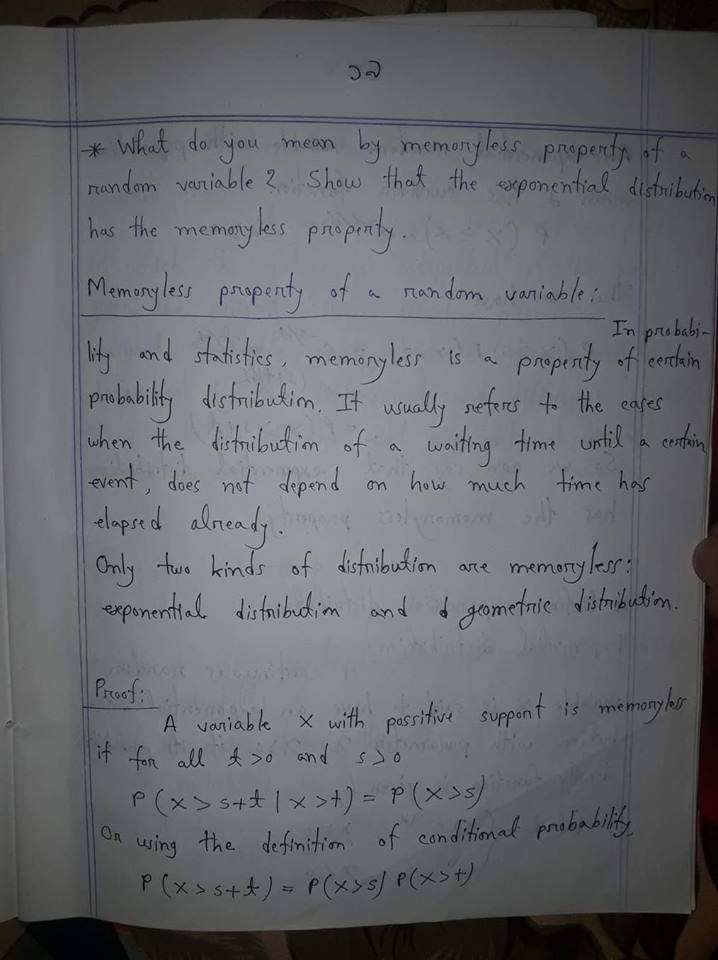 ১৫
* What do you mean by memoryless property of a
random variable? Show that the exponential distribution
has the memoryless property.
Memoryless property of a random variable:
In probabi-
lity and statistics, memoryless is a property of certain
probability distribution. It usually refers to the cases
when the distribution of a waiting time until a certain
event, does not depend on how much time has
elapsed already.
Only two kinds of distribution are memoryless:
exponential distribution and geometric distribution.
Proof:
A variable X with possitive support is memoryless
if for all t>0 and s>0
P(X>s+t|X>t) = P(X>s)
Or using the definition of conditional probability
P(X>s+t) = P(X>s) P(X>t)